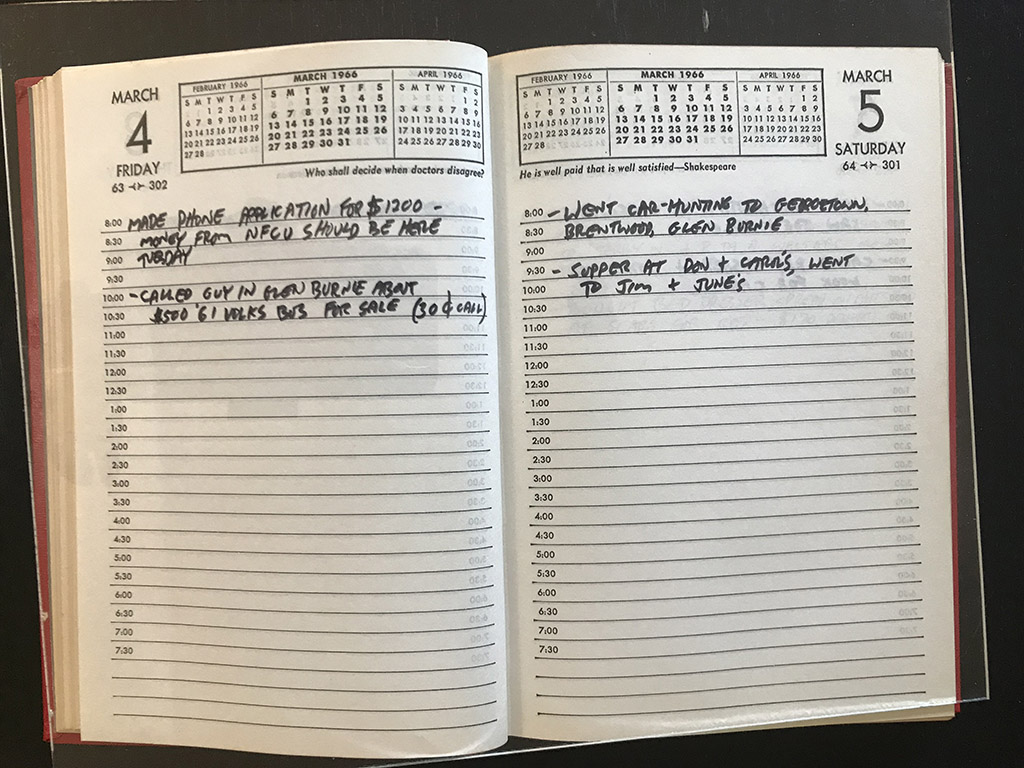 MARCH
4
FRIDAY
63 ⊰⊱ 302
FEBRUARY 1966
S M T W T F S
1 2 3 4 5
6 7 8 9 10 11 12
13 14 15 16 17 18 19
20 21 22 23 24 25 26
27 28
MARCH 1966
S M T W T F S
1 2 3 4 5
6 7 8 9 10 11 12
13 14 15 16 17 18 19
20 21 22 23 24 25 26
27 28 29 30 31
APRIL 1966
S M T W T F S
1 2
3 4 5 6 7 8 9
10 11 12 13 14 15 16
17 18 19 20 21 22 23
24 25 26 27 28 29 30
Who shall decide when doctors disagree?
8:00 MADE PHONE APPLICATION FOR $1200 -
8:30 MONEY FROM NFCU SHOULD BE HERE
9:00 TUESDAY
9:30
10:00 - CALLED GUY IN GLEN BURNIE ABOUT
10:30 $500 61 VOLKS BUS FOR SALE (30¢ CALL)
11:00
11:30
12:00
12:30
1:00
1:30
2:00
2:30
3:00
3:30
4:00
4:30
5:00
5:30
6:00
6:30
7:00
7:30
FEBRUARY 1966
S M T W T F S
1 2 3 4 5
6 7 8 9 10 11 12
13 14 15 16 17 18 19
20 21 22 23 24 25 26
27 28
MARCH 1966
S M T W T F S
1 2 3 4 5
6 7 8 9 10 11 12
13 14 15 16 17 18 19
20 21 22 23 24 25 26
27 28 29 30 31
APRIL 1966
S M T W T F S
1 2
3 4 5 6 7 8 9
10 11 12 13 14 15 16
17 18 19 20 21 22 23
24 25 26 27 28 29 30
MARCH
5
SATURDAY
64 ⊰⊱ 301
He is well paid that is well satisfied—Shakespeare
8:00 - WENT CAR-HUNTING TO GEORGETOWN,
8:30 BRENTWOOD, GLEN BURNIE
9:00
9:30 - SUPPER AT DON + CAROL'S, WENT
10:00 TO JIM + JUNE'S
10:30
11:00
11:30
12:00
12:30
1:00
1:30
2:00
2:30
3:00
3:30
4:00
4:30
5:00
5:30
6:00
6:30
7:00
7:30